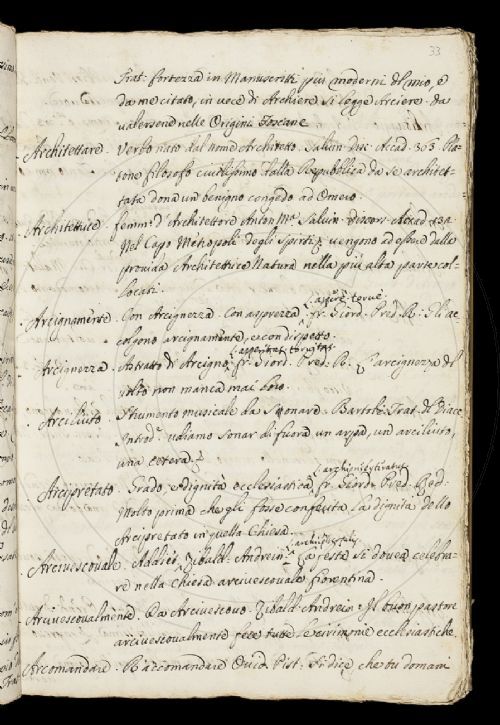 33
Trat: fortezza in Manuscritti più moderni del mio, e
da me citato, in vece di Archiere si legge Arciere. da
valersene nelle Origini Toscane
Architettare. Verbo nato dal nome Architetto. Salvin. Disc. Accad. 303. Pla-
tone filosofo civilissimo dalla Repubblica da se architet-
tata dona un benigno congedo ad Omero.
Architettrice. femm: d'Architettore Anton Mª Salvin. discors. Accad. 132
Nel Capo Metropoli degli Spiriti, vengono ad esser dalla
provida Architettrice Natura nella più alta parte col-
locati.
aspere torve
Arcignamente. Con Arcignezza. Con asprezza, fr. Giord. Pred. R. Gli ac-
colgono arcignamente, e con dispetto.
asperitas torvitas
Arcignezza. Astratto di Arcigno, fr. Giord. Pred. R. L'arcignezza del
volto non manca mai loro.
Arciliuto. Strumento musicale da Sonare. Bartolo. Trat. di Diace
Introd. udiamo sonar di fuora un arpa, un arciliuto,
una cetera.
archipresbyteratus
Arcipretato. Grado, e dignità ecclesiastica, fr. Giord. Pred. Red.
Molto prima che gli fosse conferita la dignità dello
Arcipretato in quella Chiesa.
archiepiscopalis
Arcivescovale. Addiet. Zibald. Andrein. La festa si dovea celebra-
re nella chiesa arcivescovale fiorentina.
Arcivescovalmente. Da Arcivescovo. Zibald. Andrein. Il buon pastore
arcivescovalmente fece tutte le cirimonie ecclesiastiche.
Arcomandare. Raccomandare Ovid. Pist. che tu domani